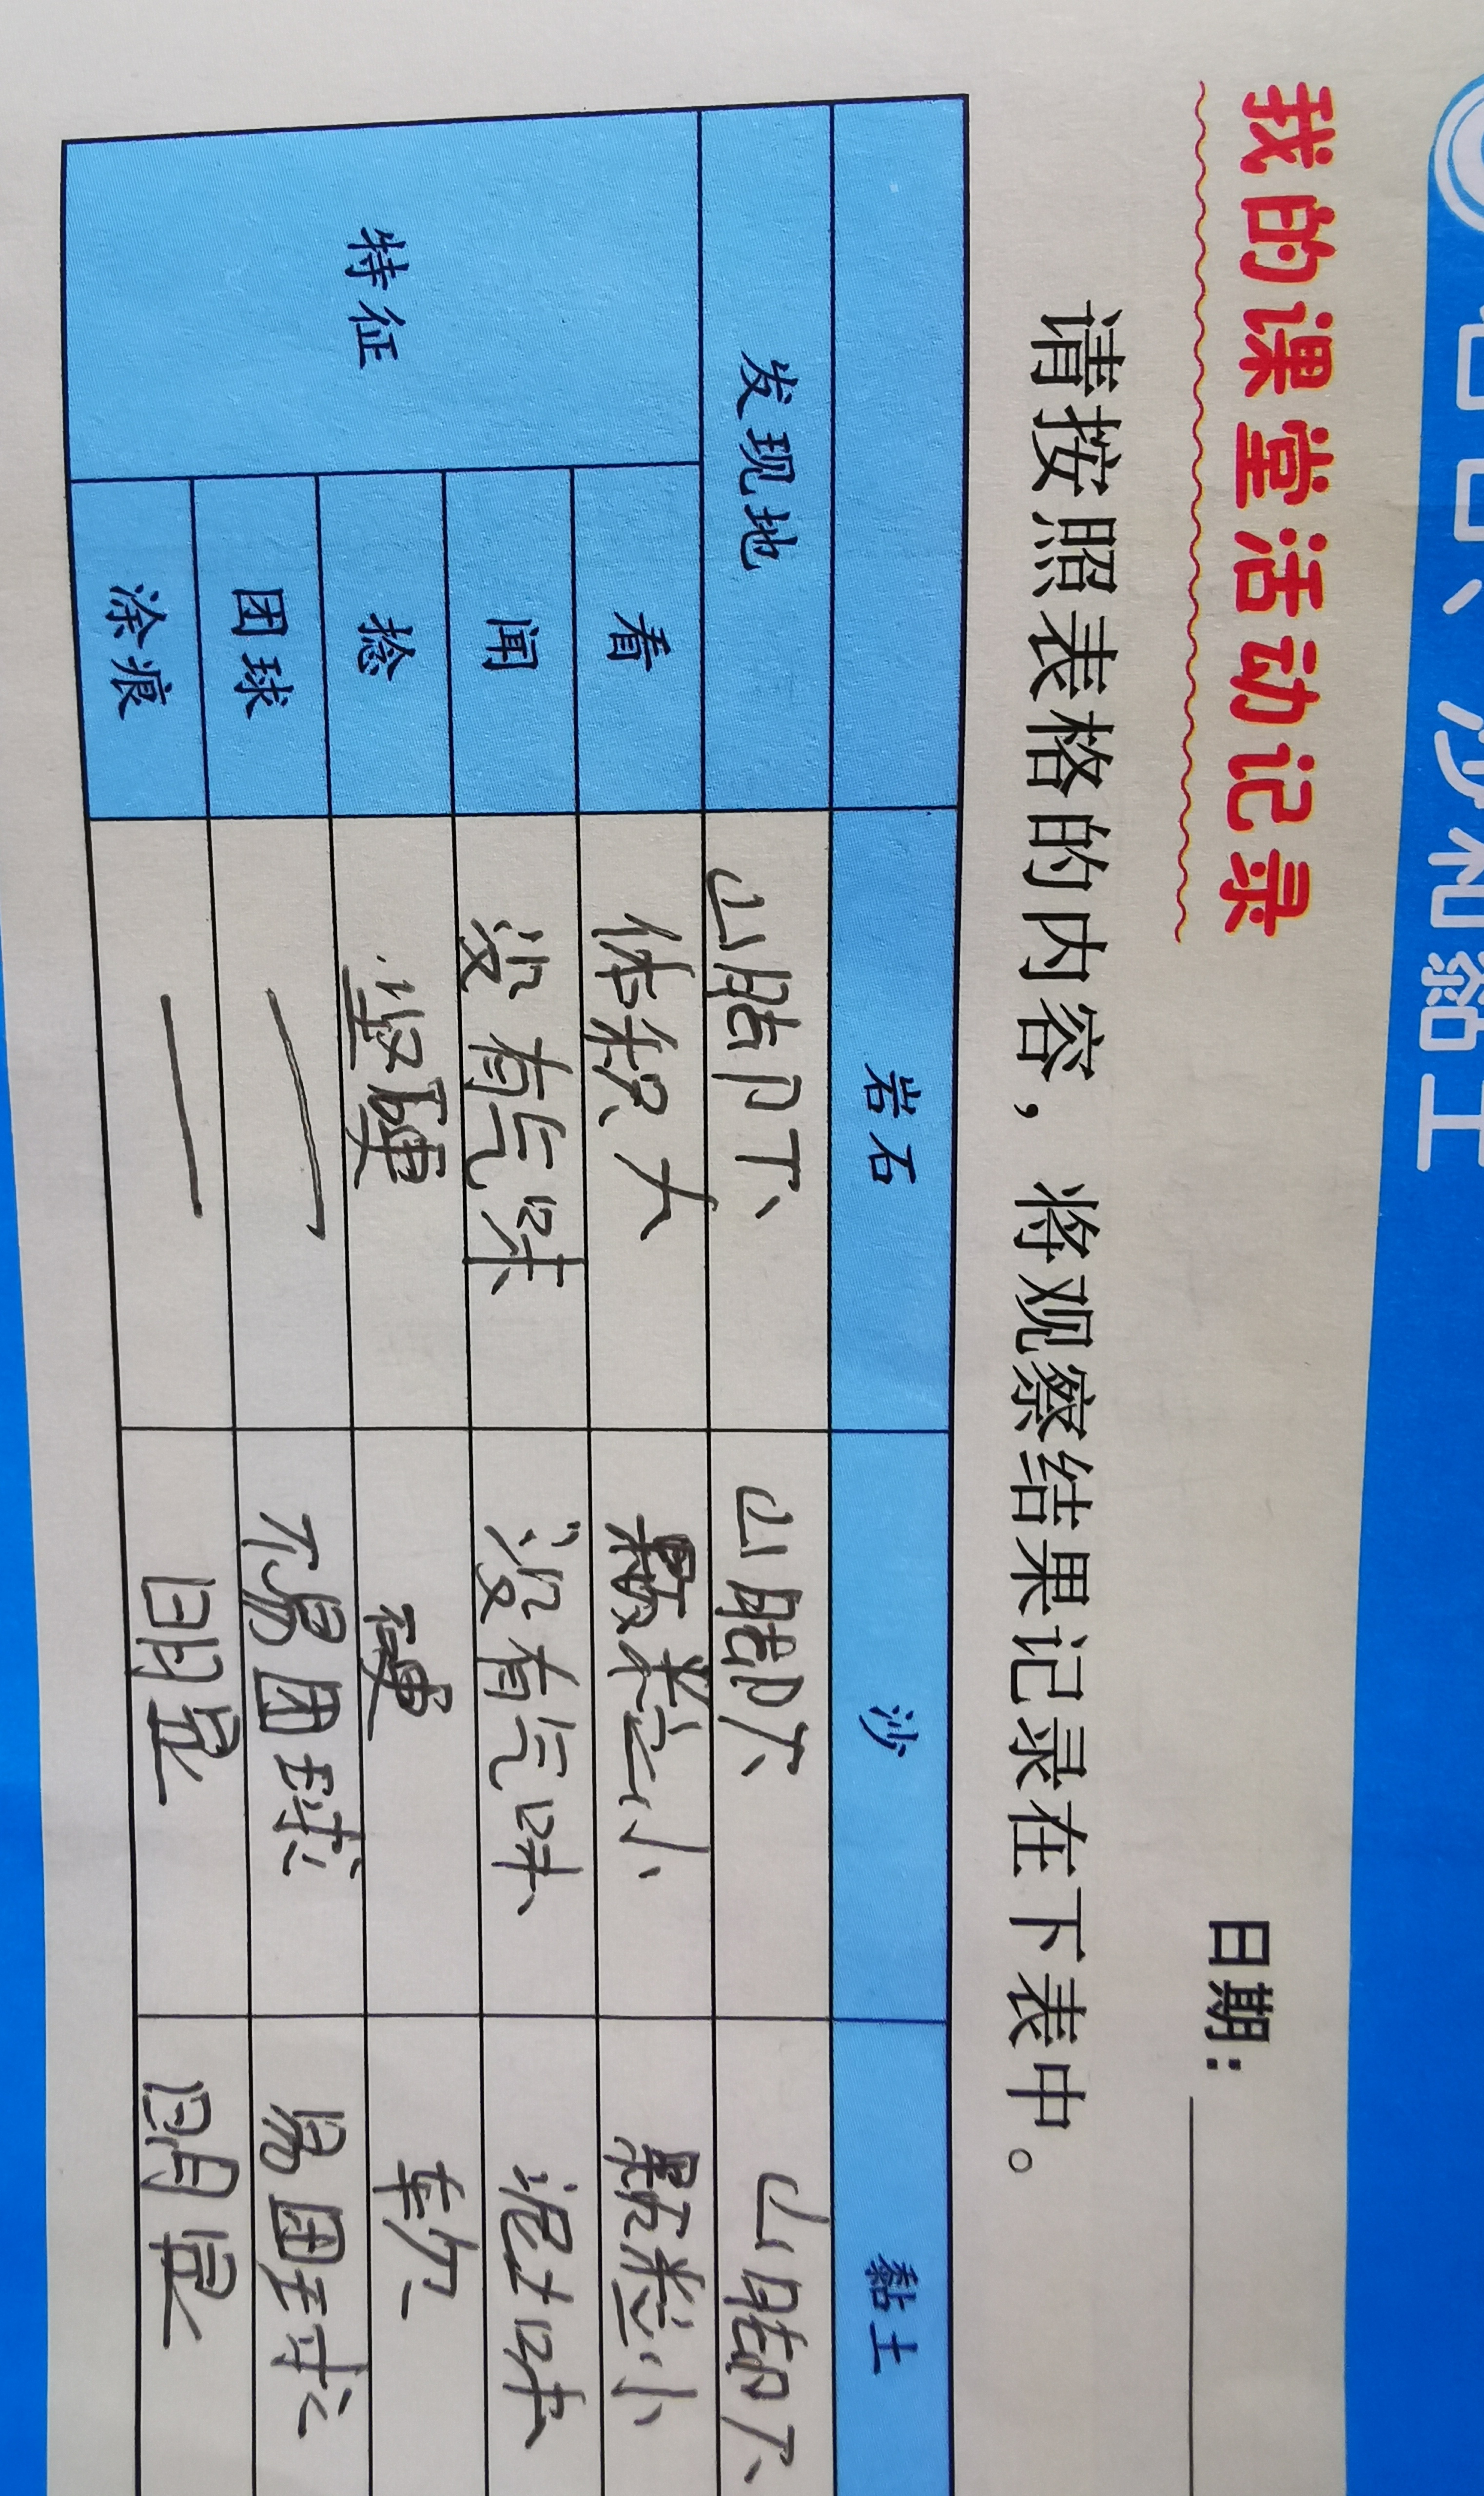 岩石、沙和黏土
我的课堂活动记录
日期：
请按照表格的内容，将观察结果记录在下表中。
岩石 沙 黏土
发现地 山脚下 山脚下 山脚下
特征
看 体积大 颗粒小 颗粒小
闻 没有气味 没有气味 泥土味
捻 坚硬 硬 软
团球 — 不易团球 易团球
涂痕 — 明显 明显